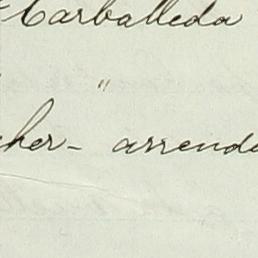 Carballeda
"
cher- arrenda